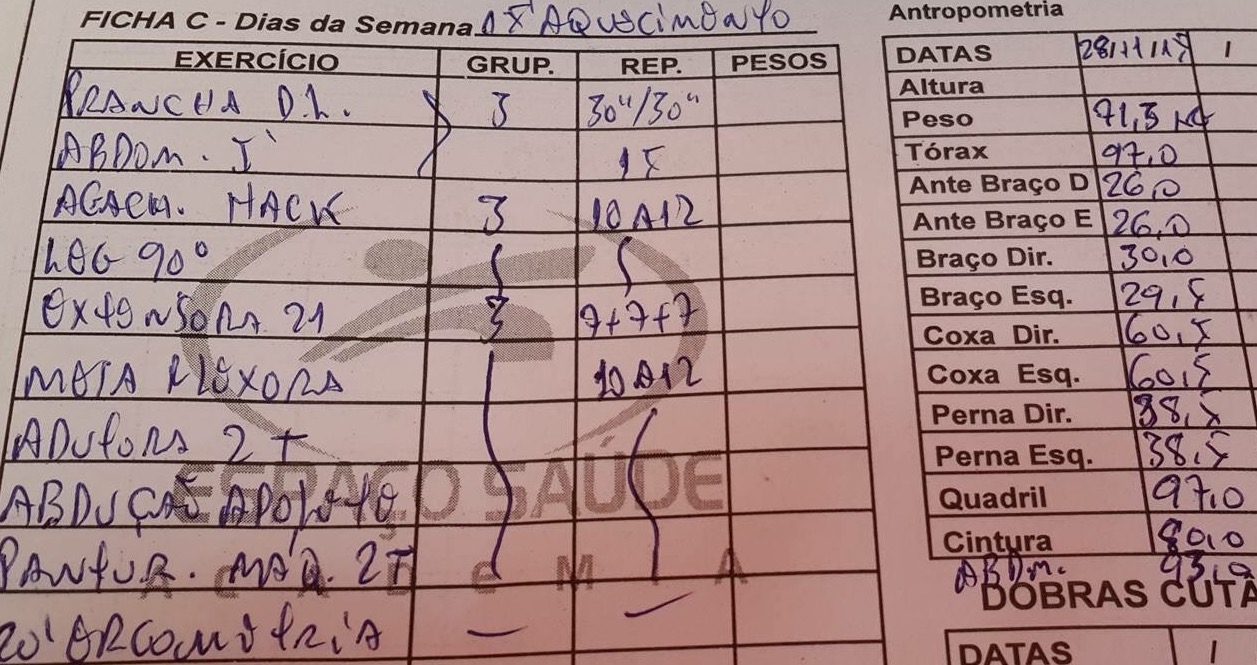 FICHA C - Dias da Semana 1X AQUECIMENTO
EXERCÍCIO GRUP. REP. PESOS
PRANCHA D.L. 3 30"/30"
ABDOM. I 15
AGACH. HACK 3 10 A 12
LEG 90°
EXTENSORA 21 3 7+7+7
MESA FLEXORA 10 A 12
ADUTORA 2T
ABDUÇÃO APOLETO
PANTUR. MÁQ. 2T
20' ERGOMETRIA — —
ESPAÇO SAÚDE
ACADEMIA
Antropometria
DATAS 28/11/17 /
Altura
Peso 71,3 KG
Tórax 97,0
Ante Braço D 26,0
Ante Braço E 26,0
Braço Dir. 30,0
Braço Esq. 29,5
Coxa Dir. 60,5
Coxa Esq. 60,5
Perna Dir. 38,5
Perna Esq. 38,5
Quadril 97,0
Cintura 80,0
ABDM. 93,0
DOBRAS CUTÂ
DATAS /